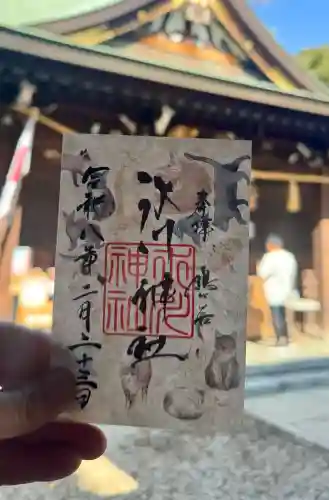 奉拝 鳩ヶ谷
氷川神社
氷川
神社
令和八年二月二十三日